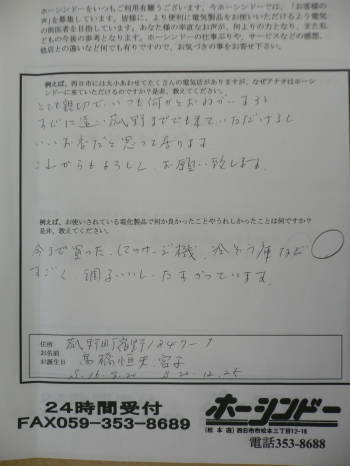 ホーシンドーをいつもご利用有難うございます。今ホーシンドーでは、「お客様の
声」を募集しています。皆様に、より便利に電気製品をお使いいただけるよう電気
の街医者を目指しています。あなた様の率直なお声が、何よりの力となり、また私
どもの今後の参考となります。ホーシンドーの仕事ぶりや、サービスなどの感想、
他店との違いなど何でも有りですので、お気づきの事をお寄せ下さい。
例えば、四日市には大小あわせてたくさんの電気店がありますが、なぜアナタはホーシ
ンドーに来ていただけるのですか？是非、教えてください。
とても親切で、いつも何かとおねがいすると
すぐに遠い菰野までも来ていただけるし
いいお店だと思って居ります
これからもよろしく、お願い致します。
例えば、お使いされている電化製品で何か良かったことやうれしかったことは何ですか？
是非、教えてください。
今まで買った、マッサージ機、冷ぞう庫など
すごく、調子いいし、たすかっています。
住所
お名前
お誕生日
24時間受付
FAX059-353-8689
ホーシンドー
(松本店)四日市市松本三丁目12-18
電話353-8688